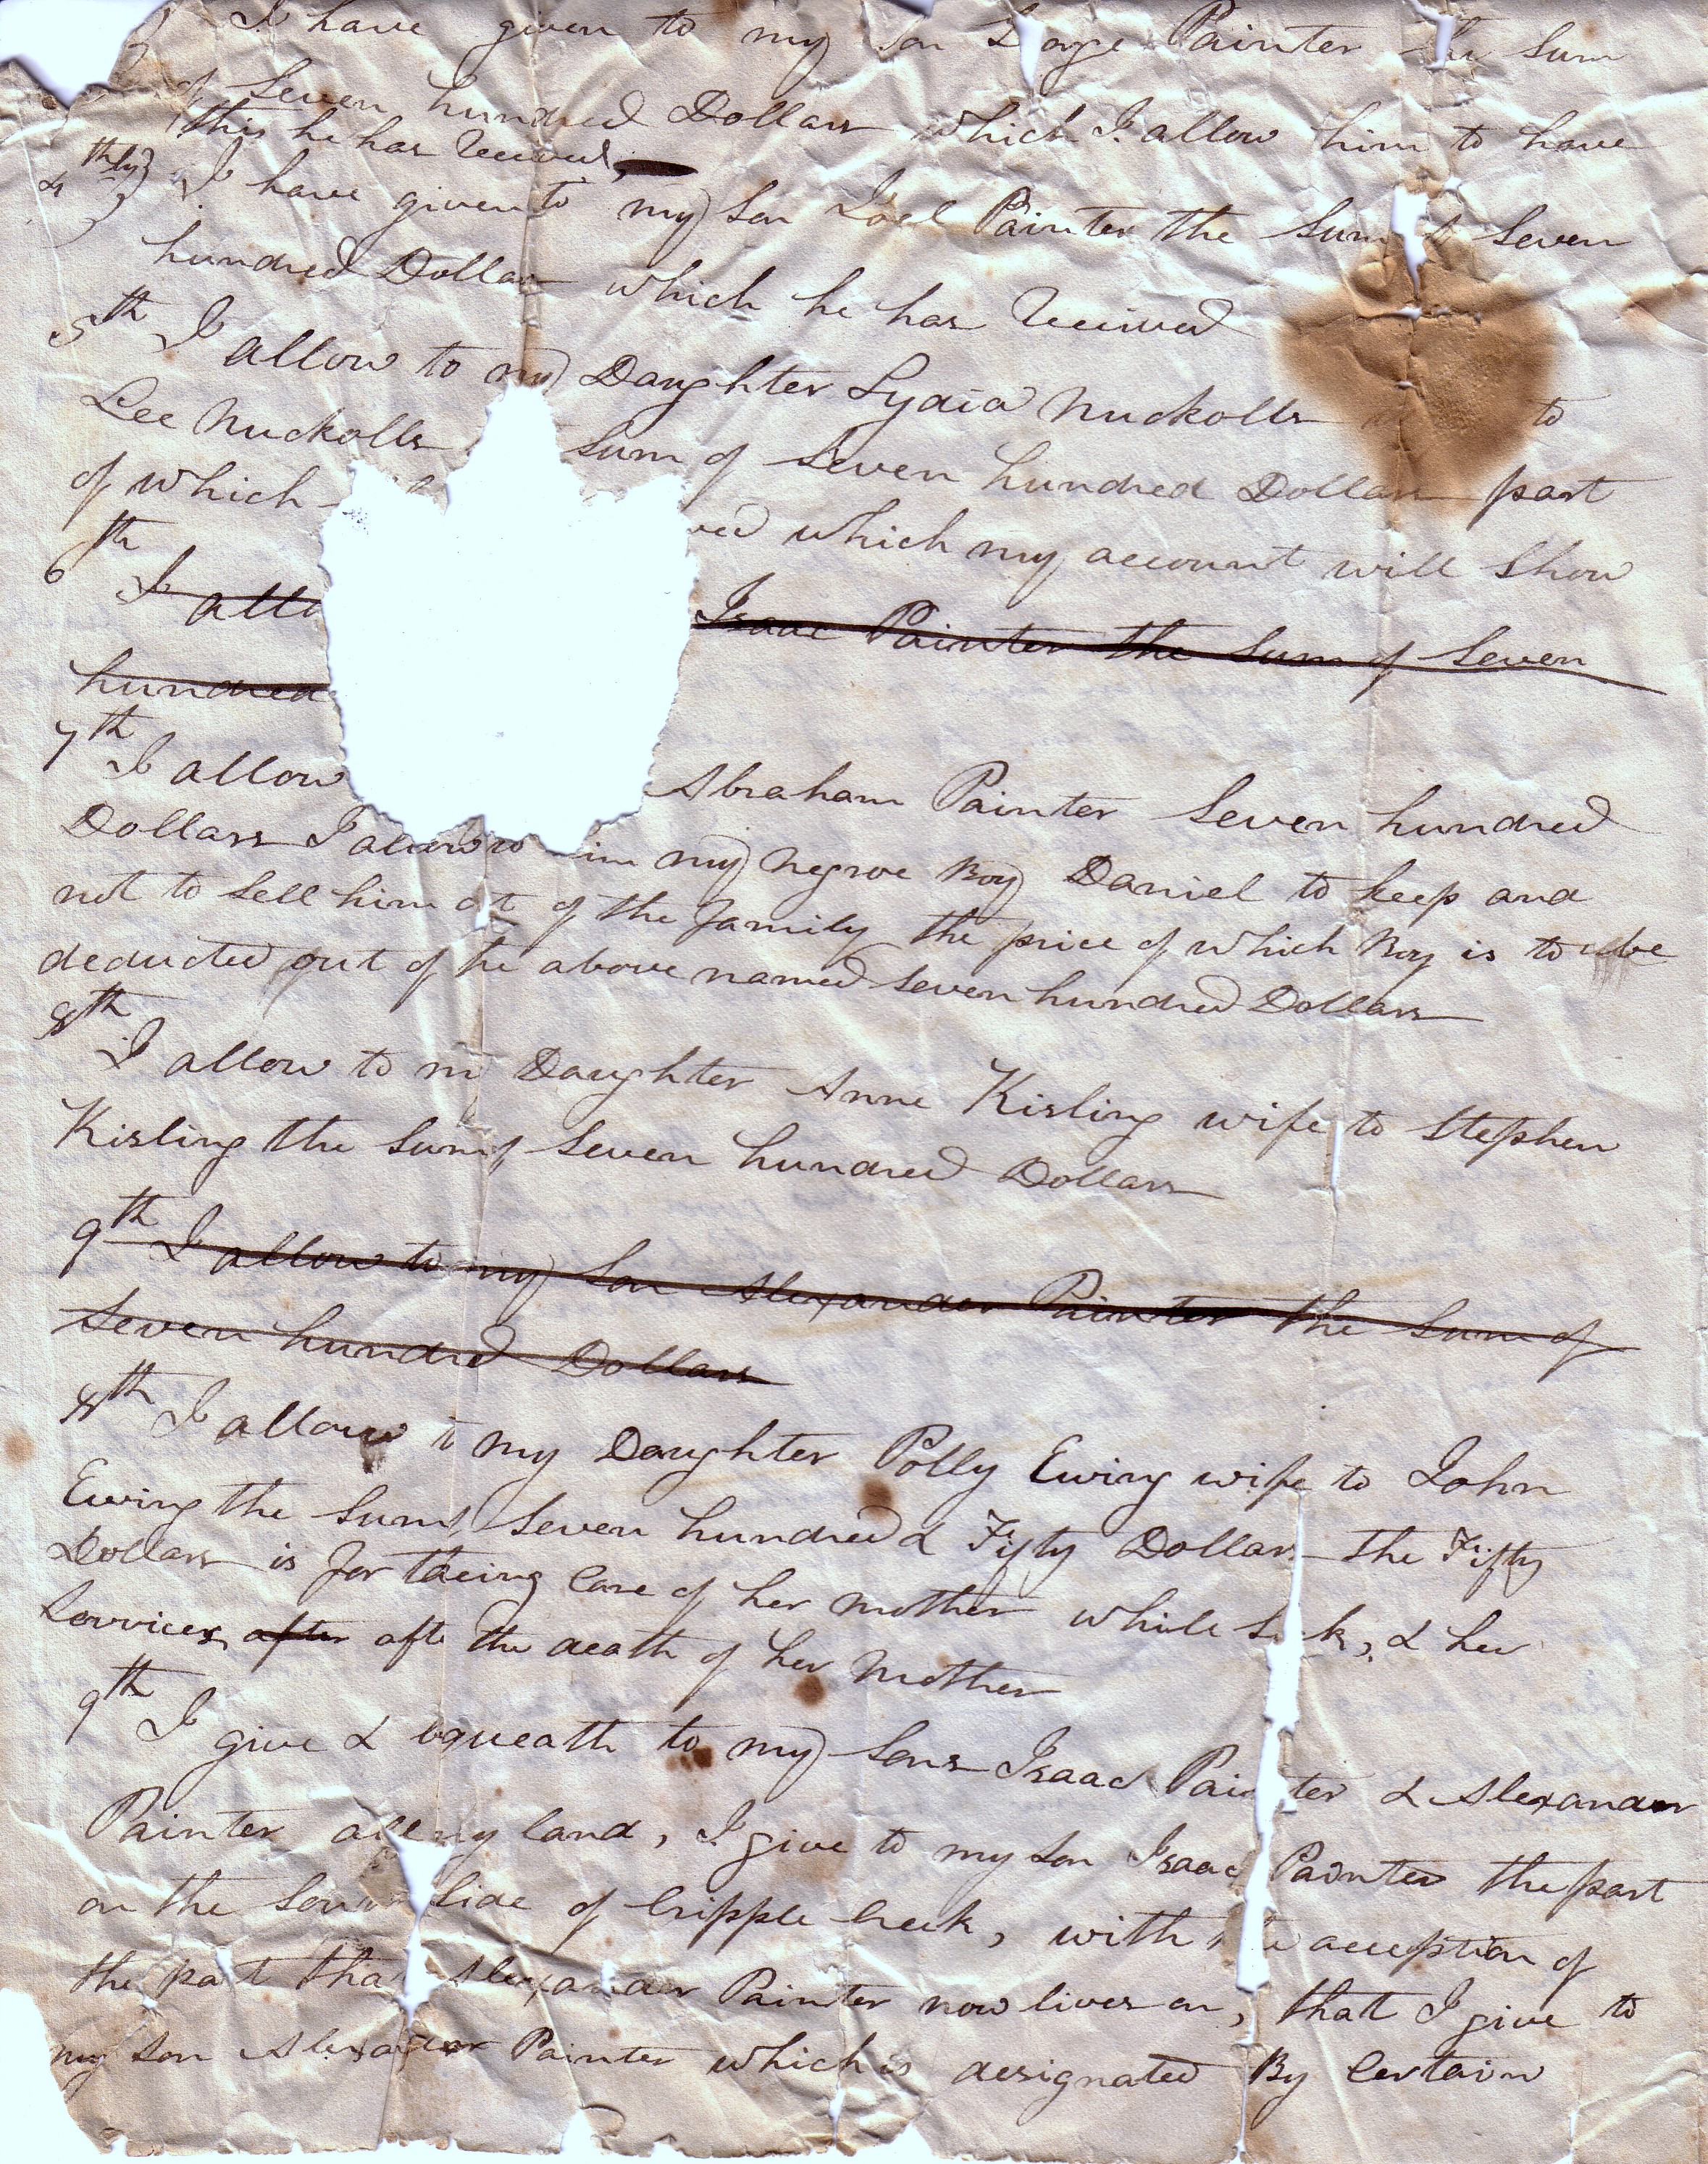 I have given to my son George Painter the Sum
of Seven hundred Dollars which I allow him to have
this he has Received,
4thly I have given to my Son Joel Painter the Sum of Seven
hundred Dollars which he has Received
5th I allow to my Daughter Lydia Nuckolls to
Lee Nuckolls Sum of Seven hundred Dollars part
of which ved which my account will Show
6th I allo Isaac Painter the Sum of Seven
hundred
7th I allow Abraham Painter Seven hundred
Dollars I allow him my negroe Boy Daniel to keep and
not to Sell him out of the family the price of which Boy is to be
deducted out of the above named Seven hundred Dollars
8th I allow to my Daughter Anne Kisling wife to Stephen
Kisling the Sum of Seven hundred Dollars
9th I allow to my Son Alexander Painter the Sum of
Seven hundred Dollars
8th I allow to my Daughter Polly Ewing wife to John
Ewing the Sum of Seven hundred & Fifty Dollars the Fifty
Dollars is for taking Care of her mother while Sick, & her
Services after afte the death of her Mother
9th I give & bqueath to my Sons Isaac Painter & Alexander
Painter all my land, I give to my Son Isaac Painter the part
on the South Side of Cripple Creek, with the acception of
the part that Alexander Painter now lives on, that I give to
my Son Alexander Painter which is designated By Certain